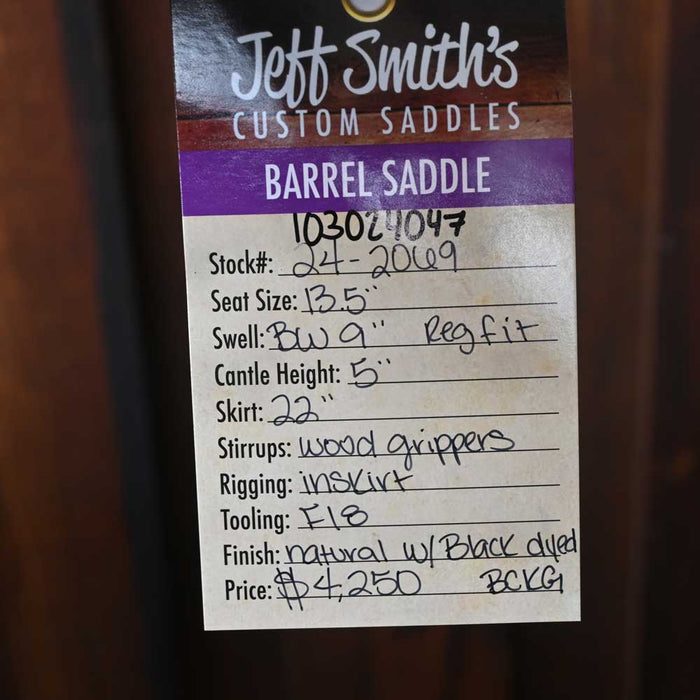 Jeff Smith's
CUSTOM SADDLES
BARREL SADDLE
103024047
Stock#: 24-2069
Seat Size: 13.5"
Swell: BW 9" Reg fit
Cantle Height: 5"
Skirt: 22"
Stirrups: wood grippers
Rigging: inskirt
Tooling: F18
Finish: natural w/ Black dyed
Price: $4,250 BCKG